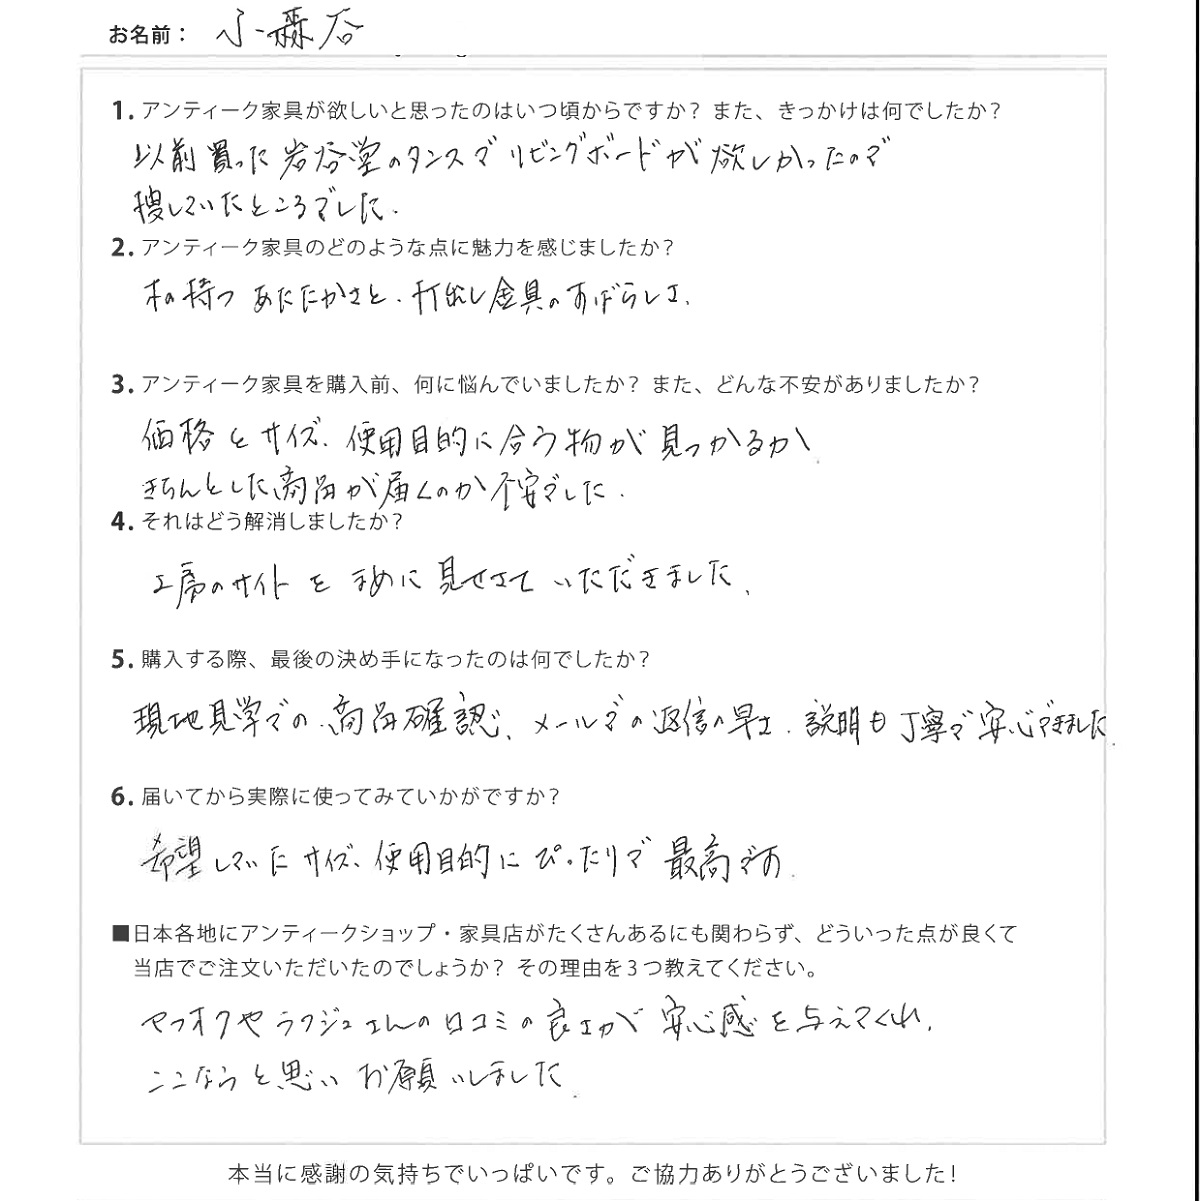 お名前： 小森谷
1. アンティーク家具が欲しいと思ったのはいつ頃からですか？ また、きっかけは何でしたか？
以前買った岩谷堂のタンスでリビングボードが欲しかったので
捜していたところでした.
2. アンティーク家具のどのような点に魅力を感じましたか？
木の持つ あたたかさと、打出し金具のすばらしさ.
3. アンティーク家具を購入前、何に悩んでいましたか？ また、どんな不安がありましたか？
価格とサイズ、使用目的に合う物が見つかるか、
きちんとした商品が届くのか不安でした.
4. それはどう解消しましたか？
工房のサイトを まめに見せさて いただきました.
5. 購入する際、最後の決め手になったのは何でしたか？
現地見学での、商品確認、メールでの返信の早さ、説明も丁寧で安心できました.
6. 届いてから実際に使ってみていかがですか？
希望していたサイズ、使用目的にぴったりで最高です.
■日本各地にアンティークショップ・家具店がたくさんあるにも関わらず、どういった点が良くて
当店でご注文いただいたのでしょうか？ その理由を３つ教えてください。
ヤフオクやラフジュさんの口コミの良さが 安心感を与えてくれ、
ここならと思い お願いしました.
本当に感謝の気持ちでいっぱいです。ご協力ありがとうございました！